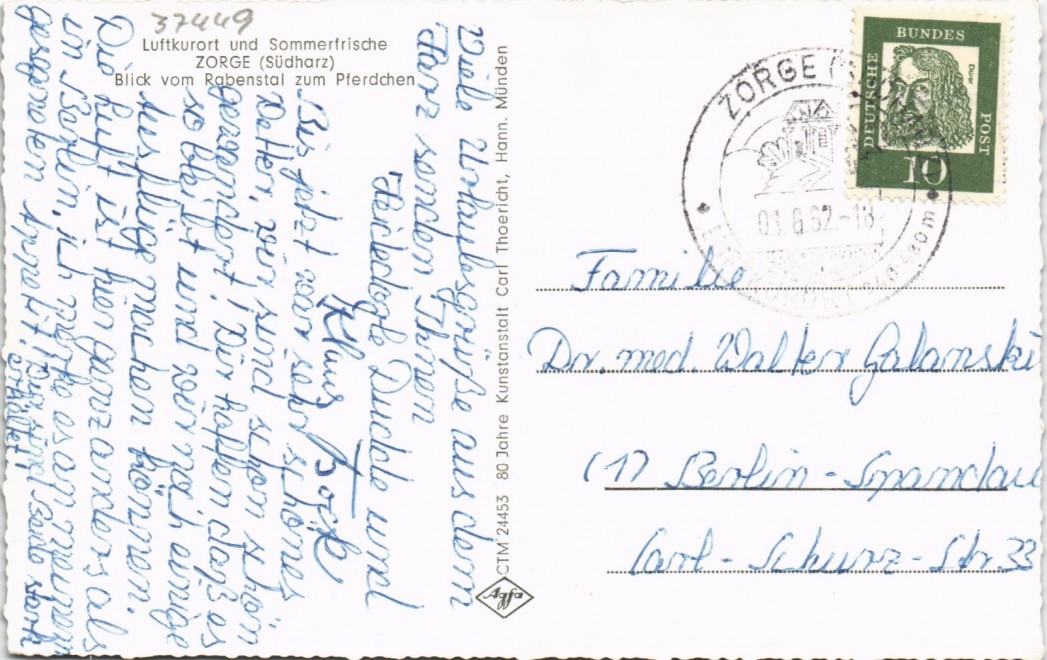 37449
Luftkurort und Sommerfrische
ZORGE (Südharz)
Blick vom Rabenstal zum Pferdchen
Viele Urlaubsgrüße aus dem
Harz senden Ihnen
Hedele Dudde und
Klaus
Bis jetzt war sehr schönes
Wetter, wir sind schon schön
Wir hoffen daß es
so bleibt und wir noch einige
Ausflüge machen können.
Die Luft ist hier ganz anders als
in Berlin, ich merke es an meinem
gesegneten Appetit, Wir sind Beide stark
erkältet!
CTM 24453 80 Jahre Kunstanstalt Carl Thoericht, Hann. Münden
Agfa
DEUTSCHE
BUNDES
POST
Dürer
10
ZORGE
03.6.62-18
Familie
Dr. med. Walter Galanski
(1) Berlin-Spandau
Carl-Schurz-Str 33